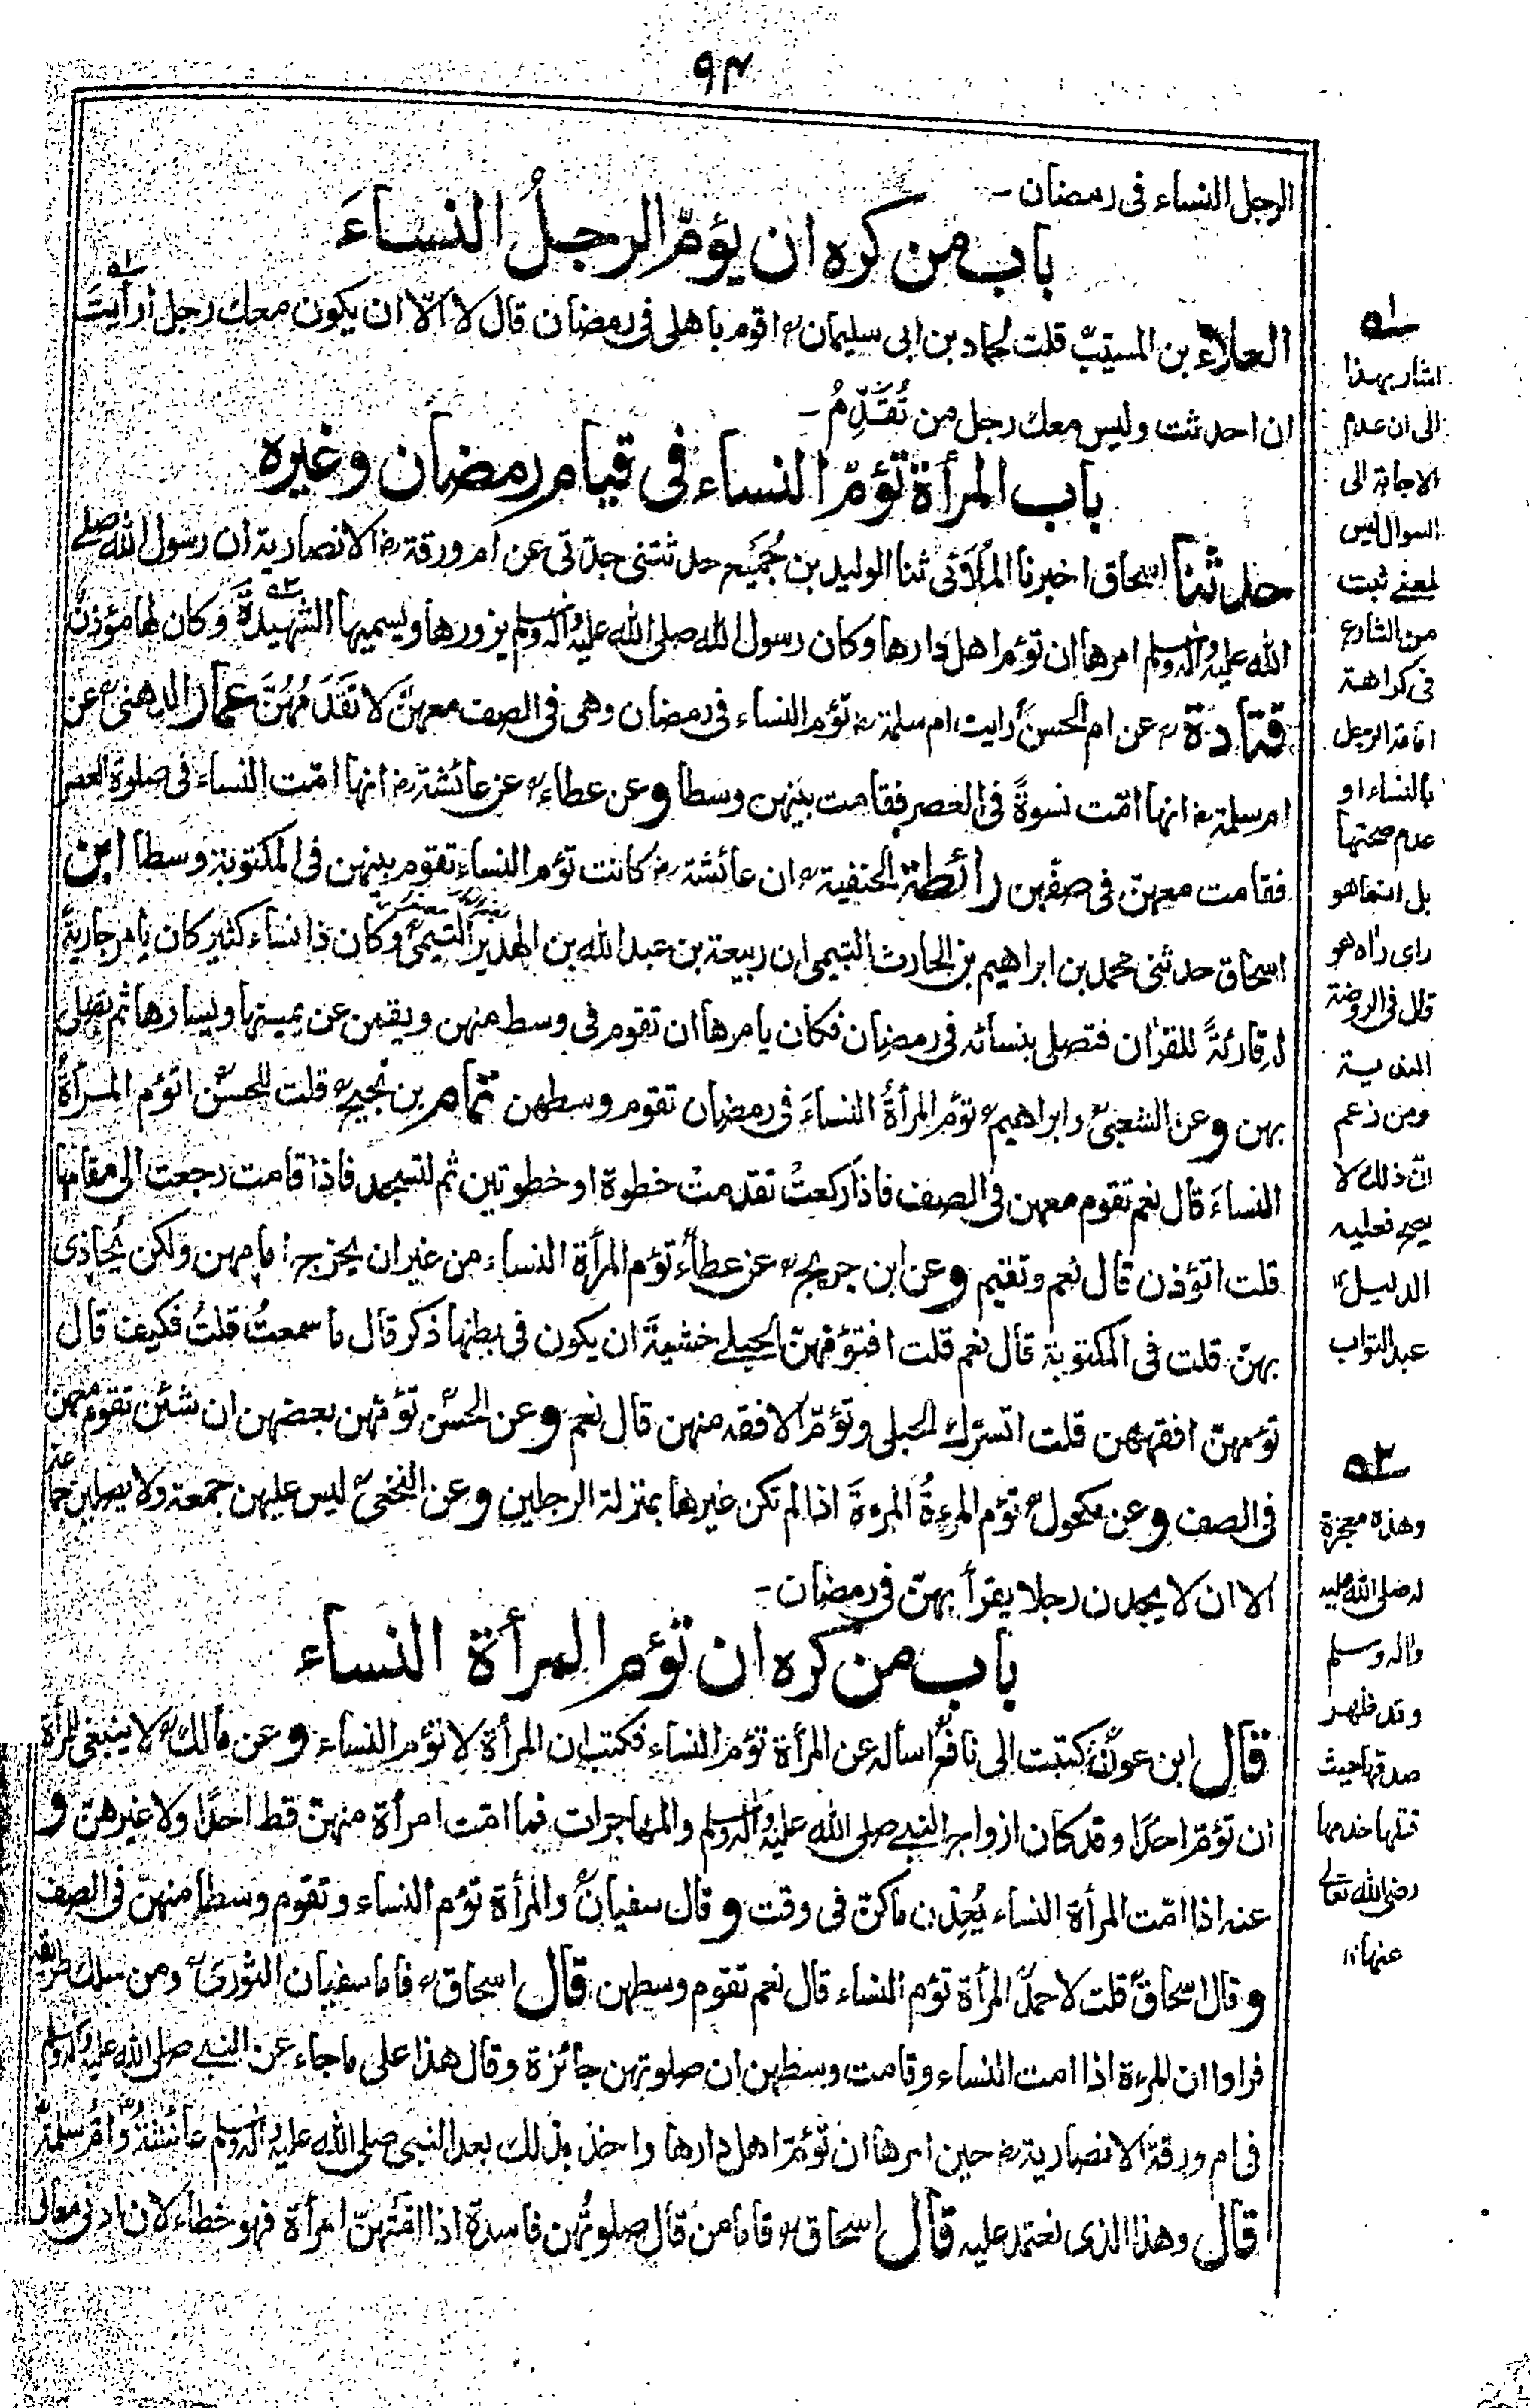 ٩٤
الرجل النساء فى رمضان -
باب من كره ان يؤمّ الرجلُ النساءَ
العلاء بن المسيّبؒ قلت لحماد بن ابى سليمانؒ اقوم باهلى فى رمضان قال لا الّا ان يكون معك رجل أرأيتَ
ان احدثت وليس معك رجل من تُقَدِّمُ -
باب المرأة تؤمّ النساء فى قيام رمضان وغيره
حدثنا اسحاق اخبرنا المُلَائى ثنا الوليد بن جُمَيع حدثتنى جدّتى عن ام ورقةؓ الانصارية ان رسول الله صلے
الله عليه وآله وسلم امرها ان تؤم اهل دارها وكان رسول الله صلى الله عليه وآله وسلم يزورها ويسميها الشهيدة وكان لها مؤذنٌ
قتادةؒ عن ام الحسنؒ رايت ام سلمةؓ تؤم النساء فى رمضان وهى فى الصف معهنّ لا تَقَدَمُهُنَّ عمار الدهنىؒ عن
ام سلمةؓ انها امّت نسوةً فى العصر فقامت بينهن وسطا وعن عطاءؒ عن عائشةؓ انها امّت النساء فى صلوة العصر
فقامت معهنّ فى صفّهن رائطة الحنفيةؒ ان عائشةؓ كانت تؤم النساء تقوم بينهن فى المكتوبة وسطا ابن
اسحاق حدثنى محمد بن ابراهيم بن الحارث التيمى ان ربيعة بن عبد الله بن الهدير التيمىؒ وكان ذا نساء كثير كان يامر جاريةً
له قارئةً للقرآن فتصلى بنسائه فى رمضان فكان يامرها ان تقوم فى وسط منهن ويقمن عن يمينها ويسارها ثم تصلى
بهن وعن الشعبىؒ وابراهيمؒ تؤم المرأةُ النساءَ فى رمضان تقوم وسطهن تمام بن نجيحؒ قلت للحسنؒ اتؤم المرأة
النساءَ قال نعم تقوم معهن فى الصف فاذا ركعتْ تقدمتْ خطوة او خطوتين ثم لتسجد فاذا قامت رجعت الى مقامها
قلت اتؤذن قال نعم وتقيم وعن ابن جريجؒ عن عطاءؒ تؤم المرأة النساء من غير ان يخرجه امامهن ولكن يُحاذى
بهنّ قلت فى المكتوبة قال نعم قلت افتؤمّهنّ الحبلے خشيةَ ان يكون فى بطنها ذكر قال ما سمعتُ قلتُ فكيف قال
تؤمهنّ افقههن قلت اتترك الحبلى وتؤمّ الافقه منهن قال نعم وعن الحسنؒ تؤمّهن بعضهن ان شئن تقوم معهن
فى الصف وعن مكحولؒ تؤم المرءةُ المرءةَ اذا لم تكن غيرها بمنزلة الرجلين وعن النخعىؒ ليس عليهن جمعة ولا يصلين جماعة
الا ان لا يجدن رجلا يقرأ بهنّ فى رمضان -
باب من كره ان تؤم المرأة النساء
قال ابن عونؒ كتبت الى نافعؒ اسأله عن المرأة تؤم النساء فكتب ان المرأة لا تؤم النساء وعن مالكؒ لا ينبغى للمرأة
ان تؤمّ احدًا وقد كان ازواج النبے صلى الله عليه وآله وسلم والمهاجرات فما امّت امرأة منهنّ قط احدًا ولا غيرهنّ و
عنه اذا امّت المرأة النساء يُعِدْن ما كنّ فى وقت وقال سفيانؒ والمرأة تؤم النساء وتقوم وسطا منهنّ فى الصف
وقال اسحاقؒ قلت لاحمدؒ المرأة تؤم النساء قال نعم تقوم وسطهن قال اسحاقؒ فاما سفيان الثورىؒ ومن سلك طريقه
فراوا ان المرءة اذا امت النساء وقامت وسطهن ان صلوتهن جائزة وقال هذا على ما جاء عن النبے صلى الله عليه وآله وسلم
فى ام ورقة الانصاريةؓ حين امرها ان تؤمّ اهل دارها واخذ بذلك بعد النبى صلى الله عليه وآله وسلم عائشةؓ وامّ سلمةؓ
قال وهذا الذى نعتمد عليه قال اسحاقؒ فاما من قال صلوتُهن فاسدة اذا امّتهنّ امرأة فهو خطاء لان ادنى معانى
١ـه
اشار بهذا
الى ان عدم
الاجابة الى
السوال ليس
لمعنے ثبت
من الشارع
فى كراهة
امامة الرجل
بالنساء او
عدم صحتها
بل انما هو
راى رآه هو
قال فى الروضة
الندية
ومن زعم
انّ ذلك لا
يصح فعليه
الدليل ١٢
عبد التواب
٢ـه
وهذه معجزة
له صلى الله عليه
وآله وسلم
وقد ظهر
صدقها حيث
قتلها خدمها
رضى الله تعالى
عنها ١٢